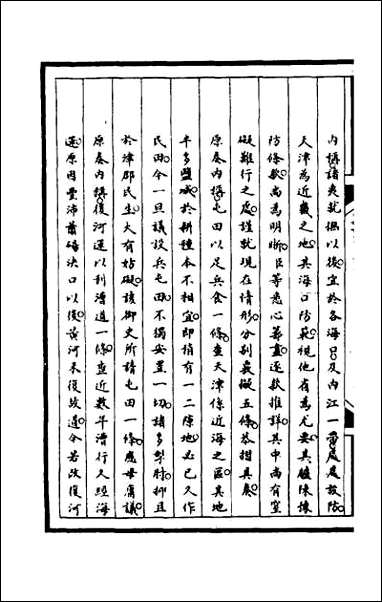 內稱請夷就撫以後宜於各海口及內江一帶處處設防
天津為近畿之地其海口防範視他省為尤要其臚陳條
防條款尚為明晰臣等悉心籌畫逐款推詳其中尚有窒
礙難行之處謹就現在情形分別裁擬五條恭摺具奏
原奏內稱屯田以足兵食一條查天津係近海之區其地
半多鹽鹻於耕種本不相宜即稍有一二隙地必已久作
民田今一旦議設兵屯田不獨安置一切諸多掣肘抑且
於津郡民生大有妨礙該御史所請屯田一條應毋庸議
原奏內稱復河運以利漕道一條查近數年漕行久經海
運原因豐沛蕭碭決口以後黃河未復故道今若改復河